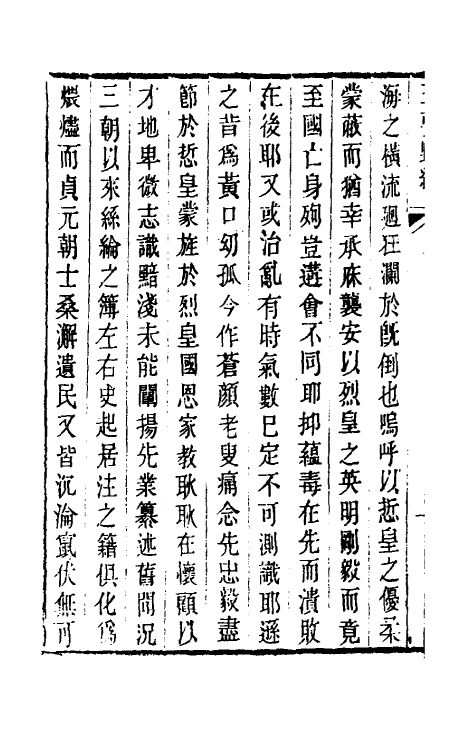 海之橫流廻狂瀾於旣倒也嗚呼以悊皇之優柔
蒙蔽而猶幸承庥襲安以烈皇之英明剛毅而竟
至國亡身殉豈遘會不同耶抑蘊毒在先而潰敗
在後耶又或治亂有時氣數已定不可測識耶遜
之昔爲黃口幼孤今作蒼顔老叟痛念先忠毅盡
節於悊皇蒙旌於烈皇國恩家教耿耿在懷顧以
才地卑微志識黯淺未能闡揚先業纂述舊聞況
三朝以來絲綸之簿左右史起居注之籍俱化爲
煨燼而貞元朝士桑澥遺民又皆沉淪竄伏無可